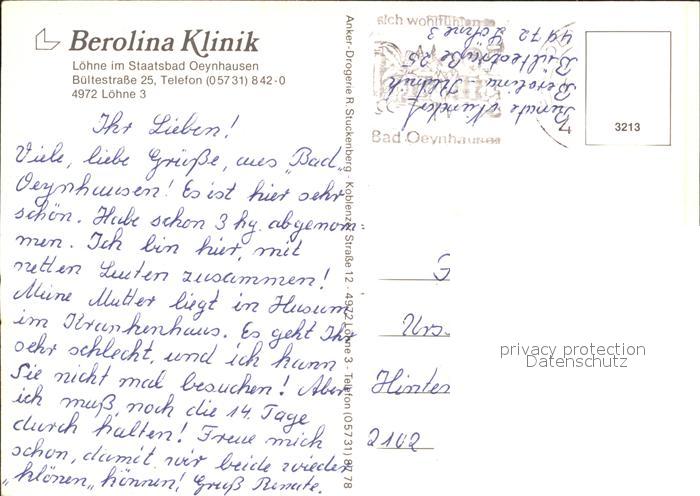 Berolina Klinik
Löhne im Staatsbad Oeynhausen
Bültestraße 25, Telefon (05731) 842-0
4972 Löhne 3
Ihr Lieben!
Viele, liebe Grüße, aus "Bad"
Oeynhausen! Es ist hier sehr
schön. Habe schon 3 kg. abgenom-
men. Ich bin hier, mit
netten Leuten zusammen!
Meine Mutter liegt in Husum
im Krankenhaus. Es geht Ihr
sehr schlecht, und ich kann
Sie nicht mal besuchen! Aber
ich muß, noch die 14. Tage
durch halten! Freue mich
schon, damit wir beide wieder
"klönen" können! Gruß Renate.
Anker-Drogerie R. Stuckenberg · Koblenzer Straße 12 · 4972 Löhne 3 · Telefon (05731) 8278
sich wohlfühlen
Bad Oeynhausen
Renate
Berolina-Klinik
Bültestraße 25
4972 Löhne 3
3213
Urs.
Hinter
2102
privacy protection
Datenschutz